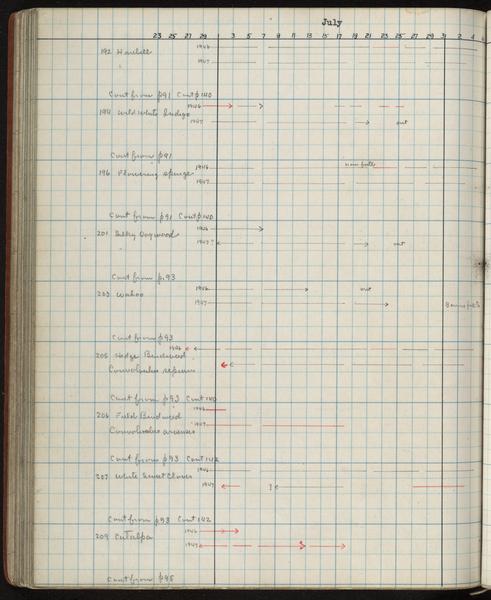 July
23 25 27 29 1 3 5 7 9 11 13 15 17 19 21 23 25 27 29 31 2 4
192 Harebell 1946
1947
Cont from p91 Cont p140
1946
194 Wild White Indigo
1947 out
Cont from p91
1946 near path
196 Flowering Spurge
1947
Cont from p91 Cont p140
1946
201 Silky Dogwood
1947? out
Cont from p.93
1946 out
203 Wahoo
1947
Cont from p93
1946
205 Hedge Bindweed
Convolvulus sepium
Cont from p93 Cont 140
1946
206 Field Bindweed
1947
Convolvulus arvensis
Cont from p93 Cont 142
1946
207 White Sweet Clover
1947 ?
Cont from p93 Cont 142
1946
209 Catalpa
1947
Cont from p95